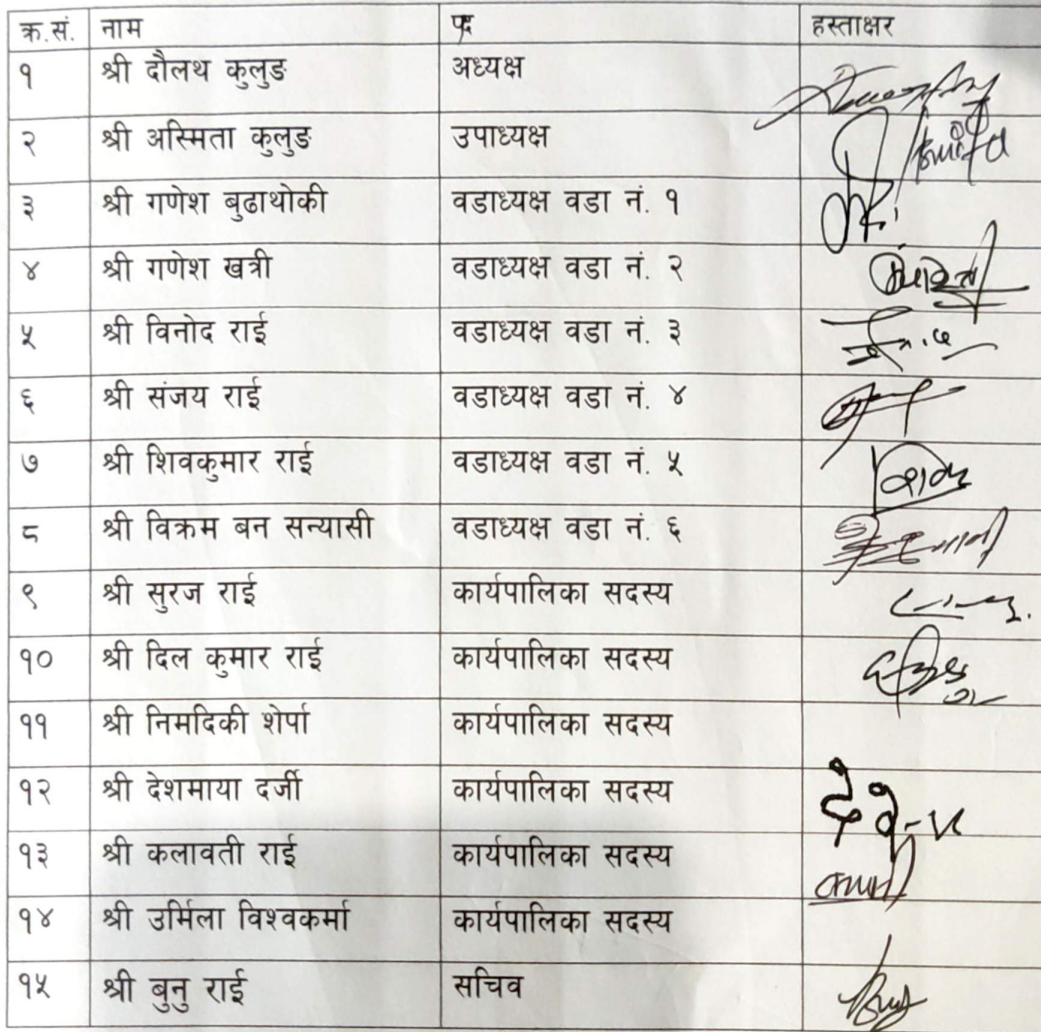 क्र.सं. नाम पद हस्ताक्षर
१ श्री दौलथ कुलुङ अध्यक्ष
२ श्री अस्मिता कुलुङ उपाध्यक्ष
३ श्री गणेश बुढाथोकी वडाध्यक्ष वडा नं. १
४ श्री गणेश खत्री वडाध्यक्ष वडा नं. २
५ श्री विनोद राई वडाध्यक्ष वडा नं. ३
६ श्री संजय राई वडाध्यक्ष वडा नं. ४
७ श्री शिवकुमार राई वडाध्यक्ष वडा नं. ५
८ श्री विक्रम बन सन्यासी वडाध्यक्ष वडा नं. ६
९ श्री सुरज राई कार्यपालिका सदस्य
१० श्री दिल कुमार राई कार्यपालिका सदस्य
११ श्री निमदिकी शेर्पा कार्यपालिका सदस्य
१२ श्री देशमाया दर्जी कार्यपालिका सदस्य
१३ श्री कलावती राई कार्यपालिका सदस्य
१४ श्री उर्मिला विश्वकर्मा कार्यपालिका सदस्य
१५ श्री बुनु राई सचिव